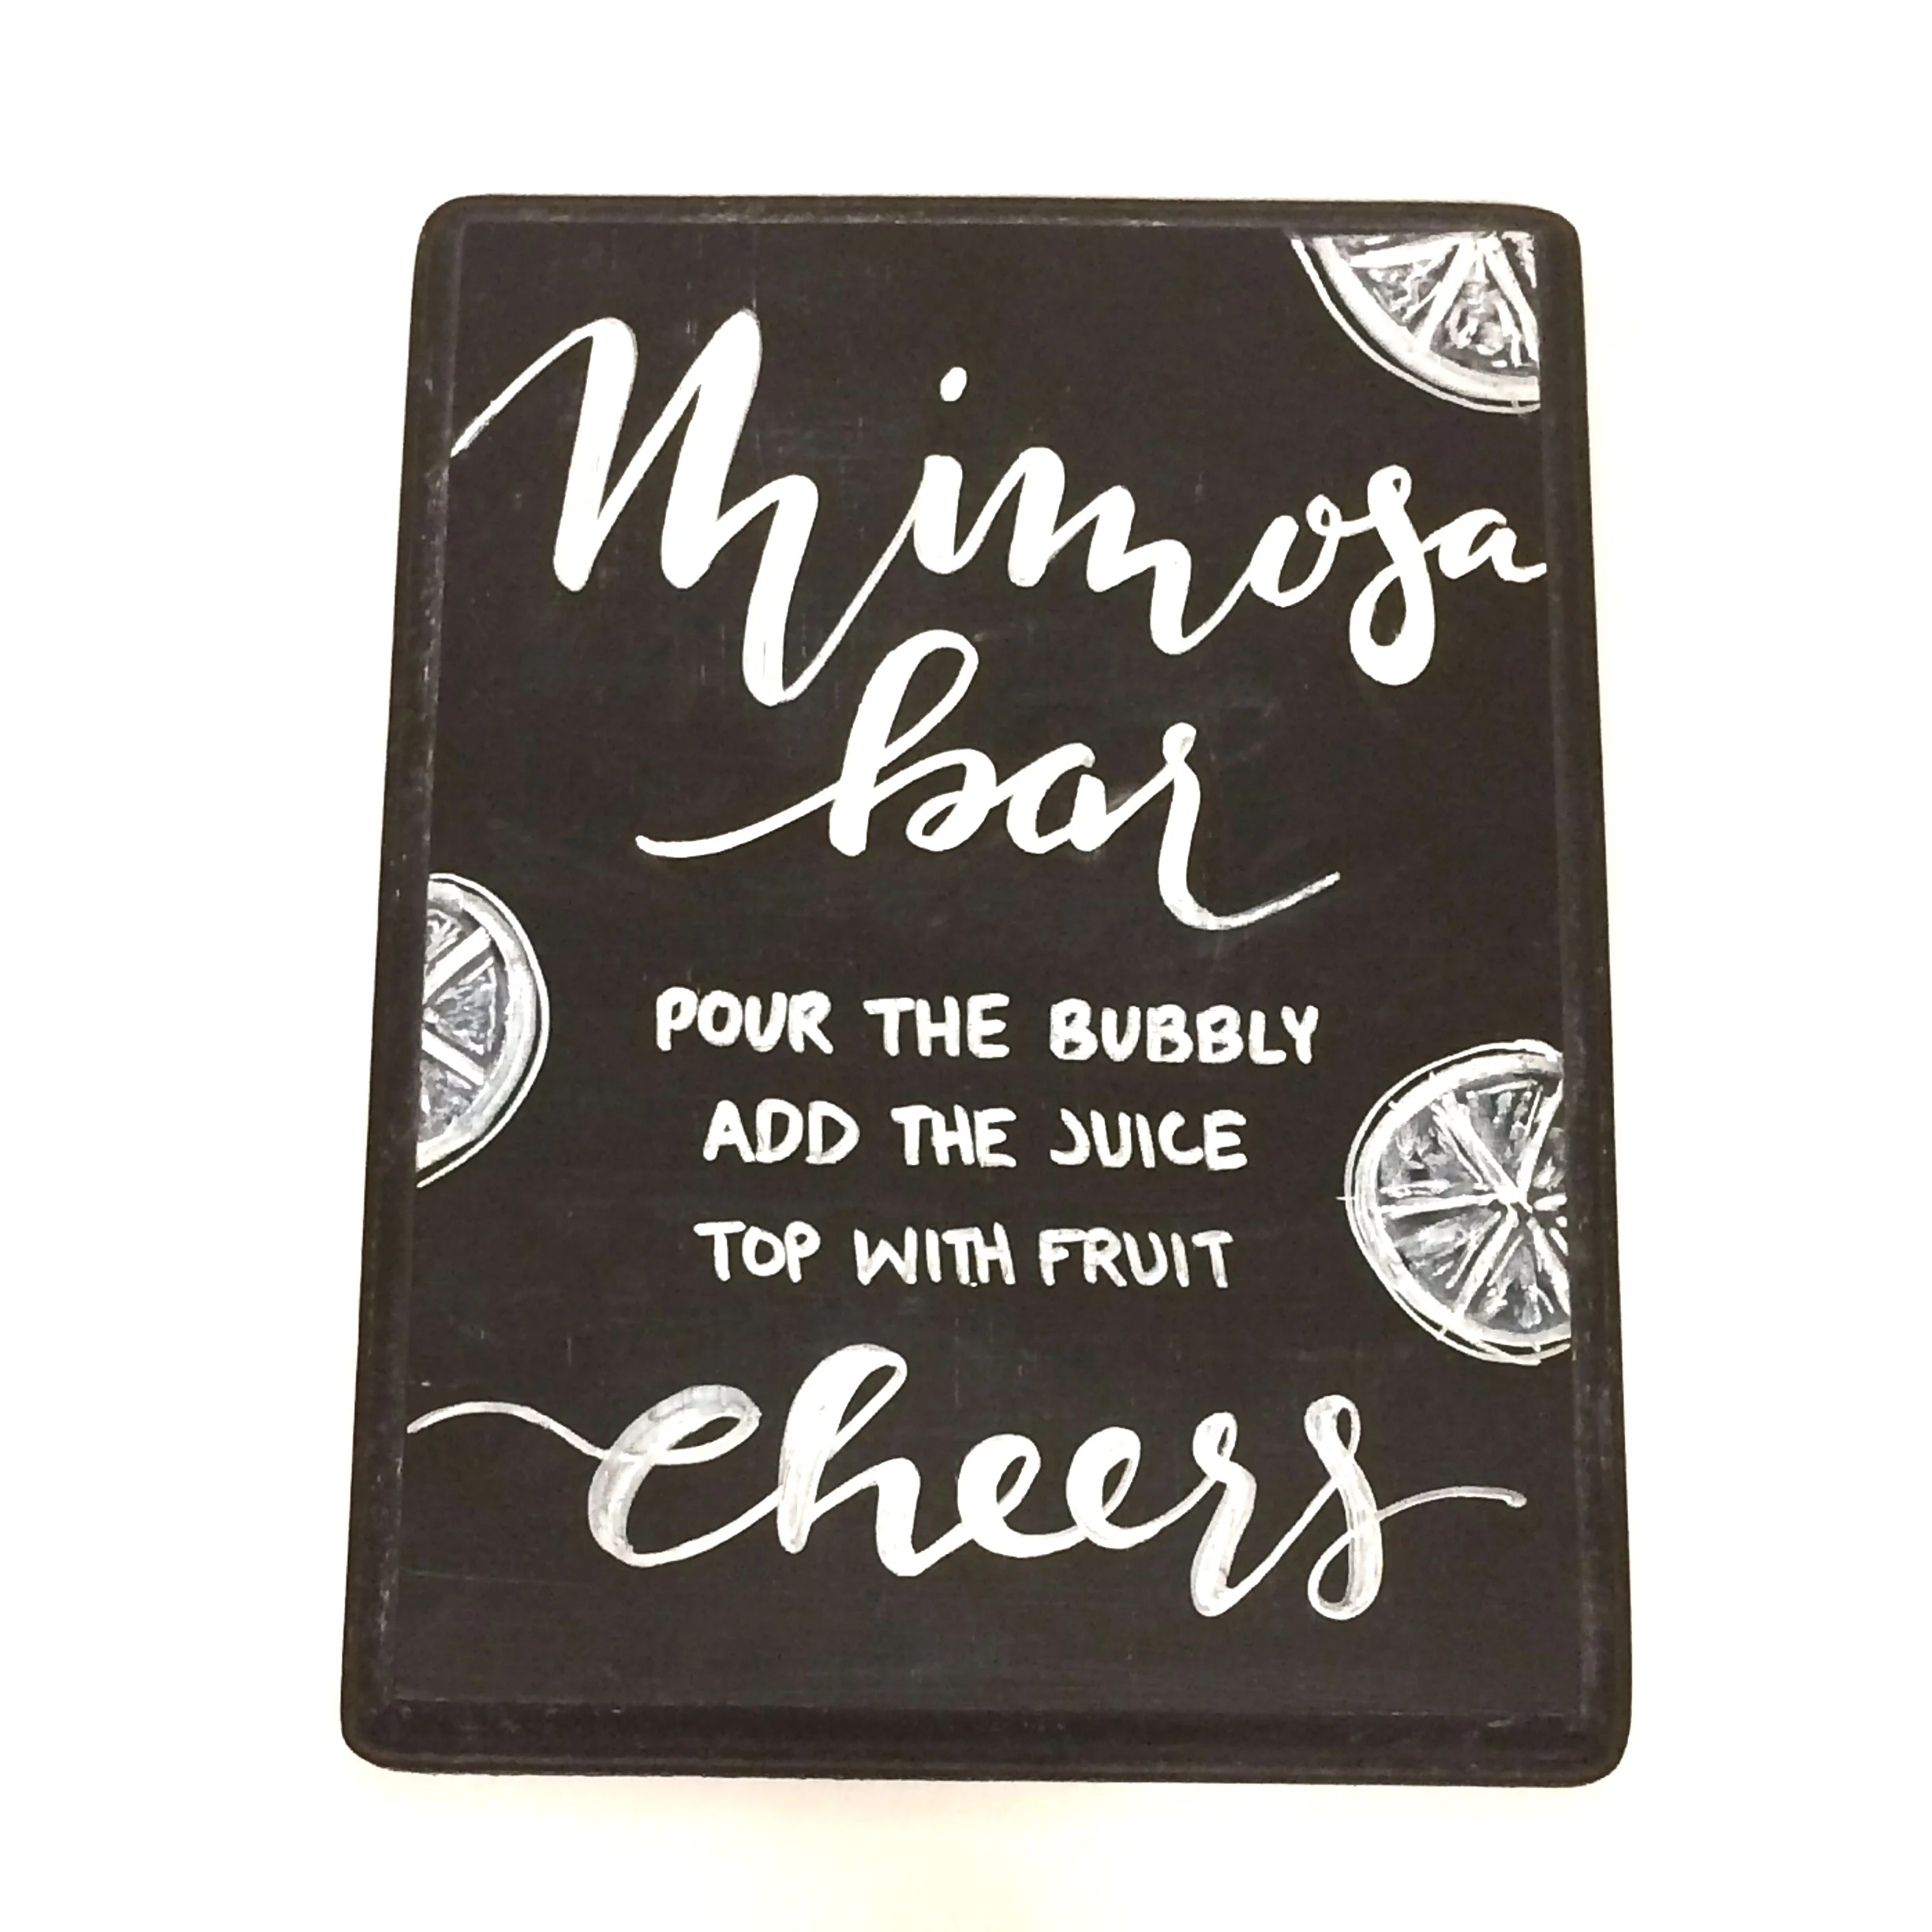 Mimosa
bar
POUR THE BUBBLY
ADD THE JUICE
TOP WITH FRUIT
cheers